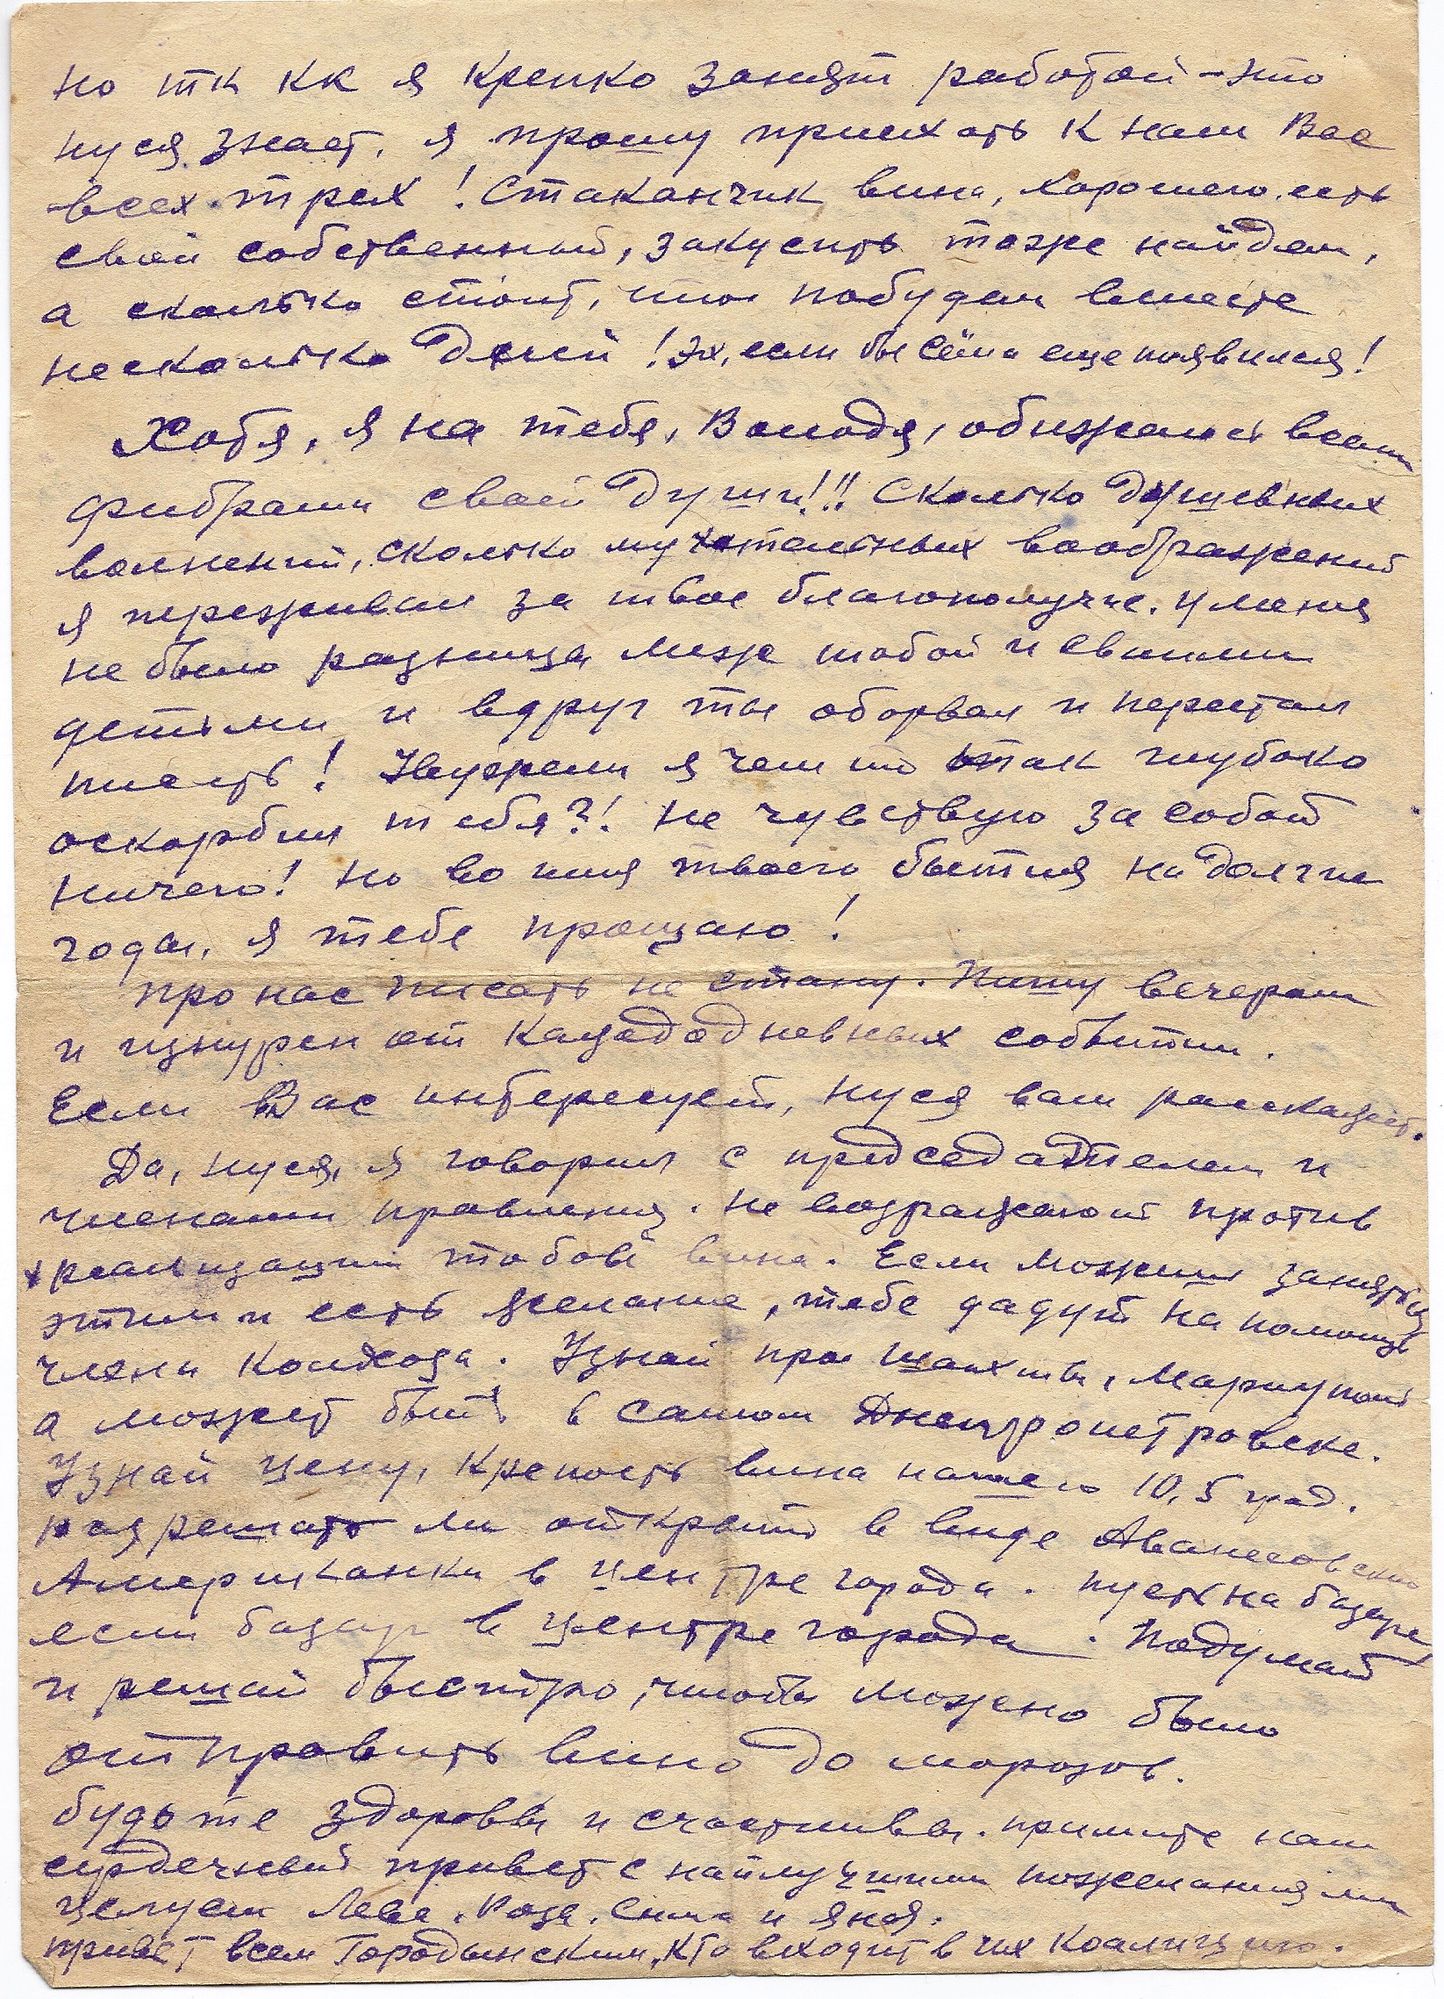 но тк кк я крепко занят работой – это
нуся знает, я прошу приехать к нам Вас
всех трех! Стаканчик вина, хорошего есть
свой собственный, закусить тоже найдем,
а сколько стоит, что побудем вместе
несколько дней! Эх, если бы Сёма еще появился!
Хотя, я на тебя, Володя, обижался всеми
фибрами своей души!!! Сколько душевных
волнений, сколько мучительных воображений
я переживал за твое благополучие. у меня
не было разница меж тобой и своими
детями и вдруг ты оборвал и перестал
писать! Неужели я чем то так глубоко
оскорбил тебя?! Не чувствую за собой
ничего! Но во имя твоего бытия на долгие
годы, я тебе прощаю!
Про нас писать не стану. Пишу вечером
и изнурен от каждодневных событии.
Если Вас интересует, нуся вам расскажет.
Да, нуся, я говорил с председателем и
членами правления. Не возражают против
реализации тобой вина. Если можешь заняться
этим и есть желание, тебе дадут на помощь
члены колхоза. Узнай про шахты, Мариуполь
а может быть в самом Днепропетровске.
Узнай цену, крепость вина нашего 10,5 град.
разрешать ли открыть в виде Аванесовской
Американки в центре города. пусть на базаре
если базар в центре города. Подумай
и решай быстро, чтобы можно было
отправить вино до морозов.
будьте здоровы и счастливы. примите наш
сердечный привет с найлучшими пожеланиями
целуем Лева, Роза, Сима и Яня.
привет всем Городынским, кто входит в их коалицию.